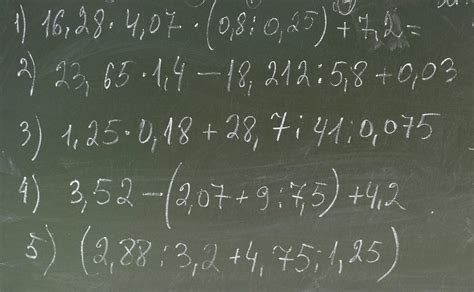 1) 16,28 : 4,07 · (0,8 : 0,25) + 7,2 =
2) 23,65 · 1,4 – 18,212 : 5,8 + 0,03
3) 1,25 · 0,18 + 28,7 : 41 : 0,075
4) 3,52 – (2,07 + 9 : 7,5) + 4,2
5) (2,88 : 3,2 + 4,75 : 1,25)